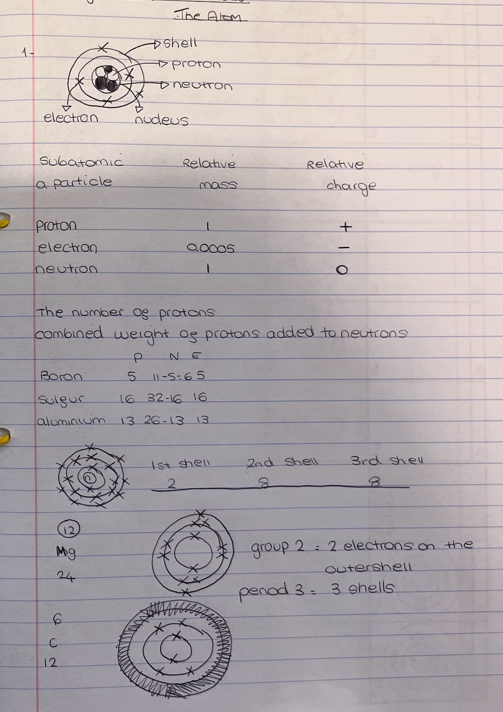 The Atom
1-
shell
proton
neutron
electron nucleus
Subatomic Relative Relative
a particle mass charge
proton 1 +
electron 0.0005 -
neutron 1 0
the number of protons
combined weight of protons added to neutrons
P N E
Boron 5 11-5=6 5
Sulfur 16 32-16 16
aluminium 13 26-13 13
1st shell 2nd shell 3rd shell
2 8 8
12
Mg
24
group 2 = 2 electrons on the
outershell
period 3 = 3 shells
6
C
12